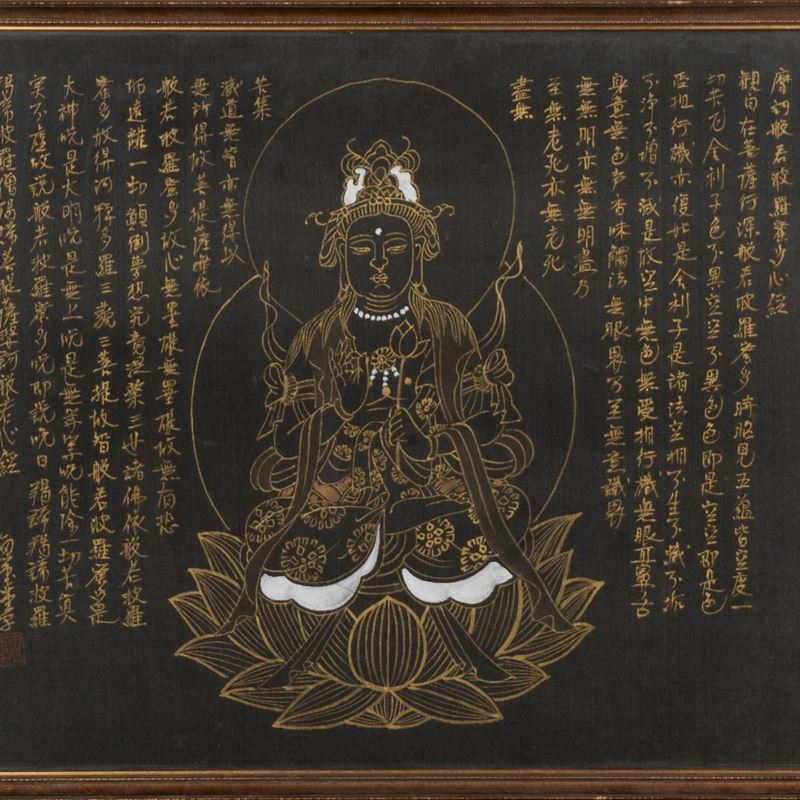 摩訶般若波羅蜜多心経
観自在菩薩行深般若波羅蜜多時照見五蘊皆空度一
切苦厄舍利子色不異空空不異色色即是空空即是色
受想行識亦復如是舍利子是諸法空相不生不滅不垢
不浄不増不減是故空中無色無受想行識無眼耳鼻舌
身意無色声香味觸法無眼界乃至無意識界
無無明亦無無明盡乃
至無老死亦無老死
盡無
苦集
滅道無智亦無得以
無所得故菩提薩埵依
般若波羅蜜多故心無罣礙無罣礙故無有恐
怖遠離一切顛倒夢想究竟涅槃三世諸佛依般若波羅
蜜多故得阿耨多羅三藐三菩提故智般若波羅蜜多是
大神呪是大明呪是無上呪是無等等呪能除一切苦真
実不虚故説般若波羅蜜多呪即説呪曰羯諦羯諦波羅
羯諦波羅僧羯諦菩提薩婆訶般若心経